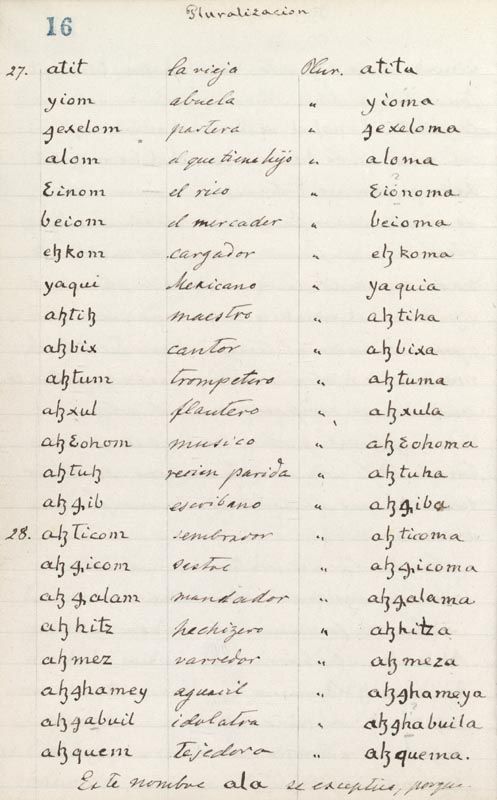 Pluralizacion
16
27. atit la vieja Plur. atita
yiom abuela " yioma
ɡexelom partera " ɡexeloma
alom el que tiene hijo " aloma
Ɛinom el rico " Ɛionoma
beiom el mercader " beioma
eꜧkom cargador " eꜧkoma
yaqui Mexicano " yaquia
aꜧtiꜧ maestro " aꜧtiha
aꜧbix cantor " aꜧbixa
aꜧtum trompetero " aꜧtuma
aꜧxul flautero " aꜧxula
aꜧƐohom musico " aꜧƐohoma
aꜧtuꜧ recien parida " aꜧtuha
aꜧɡib escribano " aꜧɡiba
28. aꜧticom sembrador " aꜧticoma
aꜧɡicom sastre " aꜧɡicoma
aꜧɡalam mandador " aꜧɡalama
aꜧhitz hechizero " aꜧhitza
aꜧmez varredor " aꜧmeza
aꜧɡhamey aguacil " aꜧɡhameya
aꜧɡabuil idolatra " aꜧɡhabuila
aꜧquem tejedora " aꜧquema.
Este nombre ala se exceptua, porque